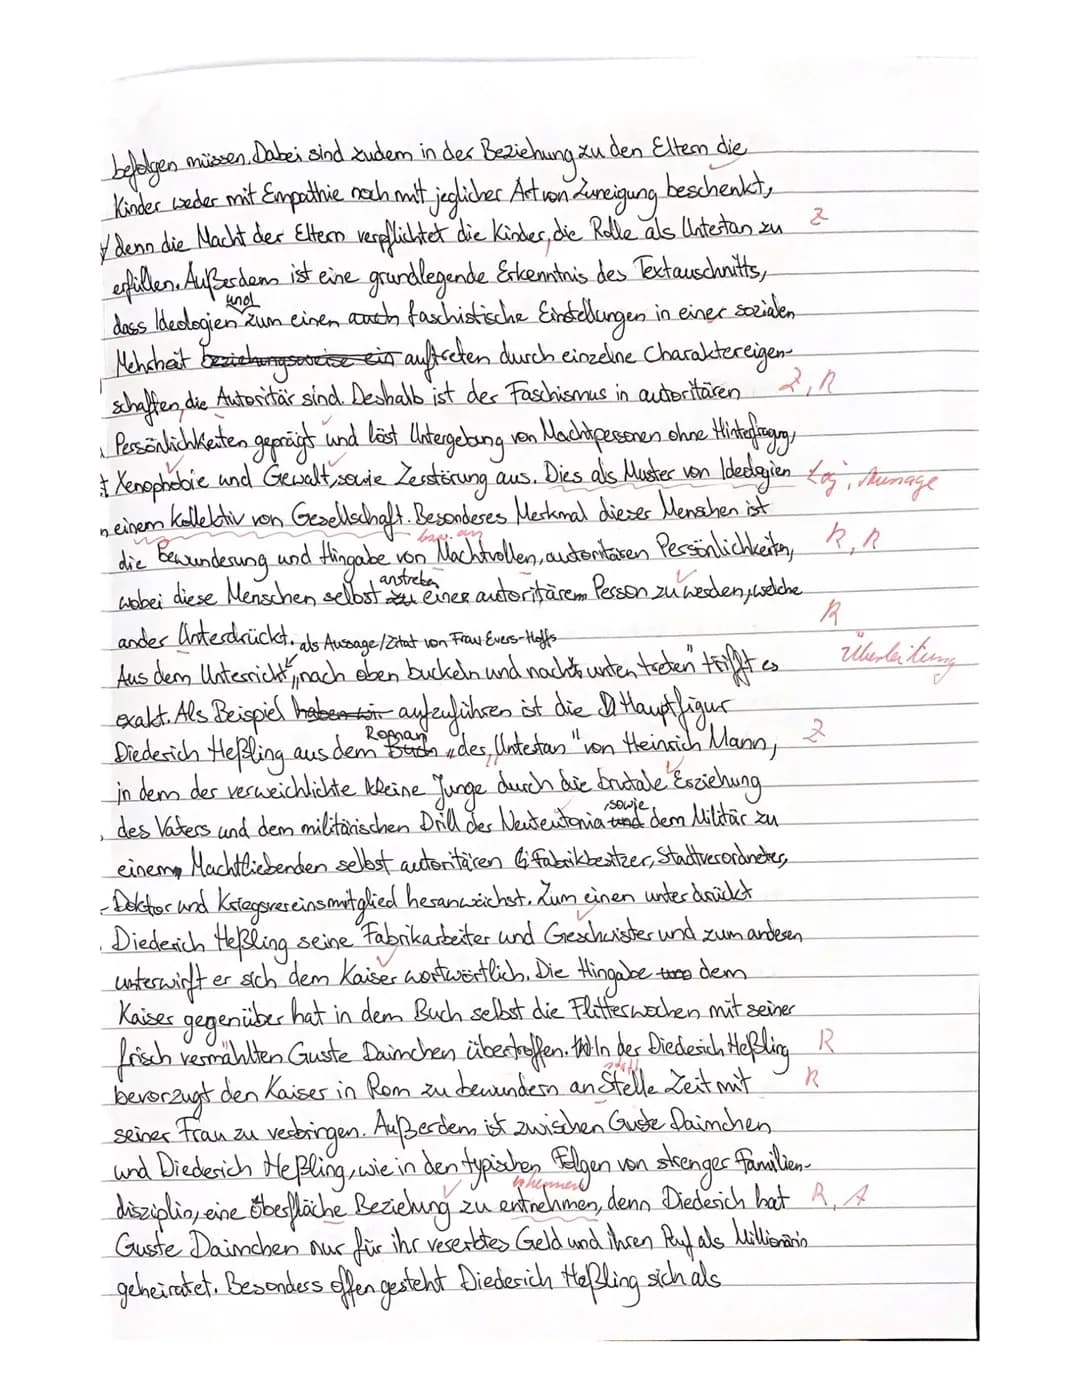 befolgen müssen. Dabei sind zudem in der Beziehung zu den Eltern die
Kinder weder mit Empathie noch mit jeglicher Art von Zuneigung beschenkt,
denn die Macht der Eltern verpflichtet die Kinder, die Rolle als Untertan zu Z
erfüllen. Außerdem ist eine grundlegende Erkenntnis des Textauschnitts,
und
dass Ideologien zum einen auch faschistische Einstellungen in einer sozialen
Mehrheit beziehungsweise ein auftreten durch einzelne Charaktereigen-
schaften, die Autoritär sind. Deshalb ist der Faschismus in autoritären Z, R
Persönlichkeiten geprägt und löst Untergebung von Machtpersonen ohne Hinterfragung,
Xenophobie und Gewalt, sowie Zerstörung aus. Dies als Muster von Ideologien Log., Aussage
n einem Kollektiv von Gesellschaft. Besonderes Merkmal dieser Menschen ist
bzw. an
die Bewunderung und Hingabe von Machtvollen, autoritären Persönlichkeiten, R, R
anstreben
wobei diese Menschen selbst zu einer autoritärem Person zu werden, welche
R
ander Unterdrückt. als Aussage/Zitat von Frau Evers-Hoffs
Überleitung
Aus dem Unterricht „nach oben buckeln und nach unten treten" trifft es
exakt. Als Beispiel haben wir aufzuführen ist die Hauptfigur
Roman
Diederich Heßling aus dem Buch „der Untertan" von Heinrich Mann, Z
in dem der verweichlichte kleine Junge durch die brutale Erziehung
, sowie
des Vaters und dem militärischen Drill der Neuteutonia und dem Militär zu
einem Machtliebenden selbst autoritären Fabrikbesitzer, Stadtverordneter,
Doktor und Kriegsvereinsmitglied heranwächst. Zum einen unterdrückt
Diederich Heßling seine Fabrikarbeiter und Geschwister und zum anderen
unterwirft er sich dem Kaiser wortwörtlich. Die Hingabe dem
Kaiser gegenüber hat in dem Buch selbst die Flitterwochen mit seiner
frisch vermählten Guste Daimchen übertroffen. In der Diederich Heßling R
bevorzugt den Kaiser in Rom zu bewundern an Stelle Zeit mit R
seiner Frau zu verbringen. Außerdem ist zwischen Guste Daimchen
und Diederich Heßling, wie in den typischen Folgen von strenger Familien-
disziplin, eine Oberfläche Beziehung zu entnehmen, denn Diederich hat R, A
Guste Daimchen nur für ihr vererbtes Geld und ihren Ruf als Millionärin
geheiratet. Besonders offen gesteht Diederich Heßling sich als